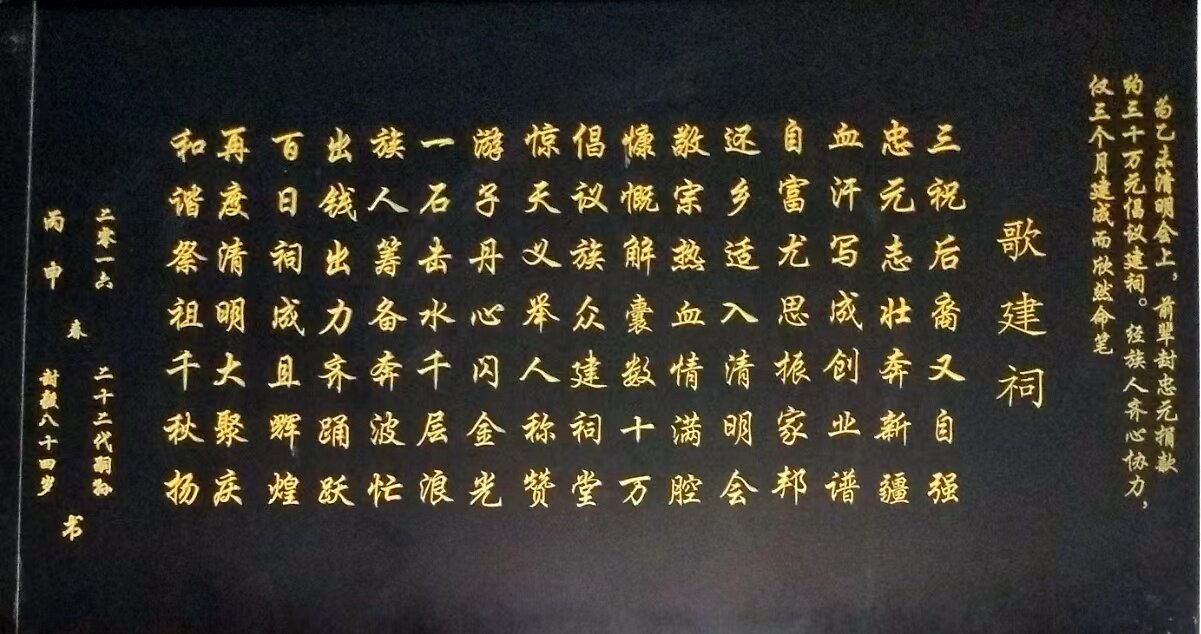 为乙未清明会上，前辈封忠元捐款
约三十万元倡议建祠。经族人齐心协力，
仅三个月建成而欣然命笔
歌建祠
三祝后裔又自强
忠元志壮奔新疆
血汗写成创业谱
自富尤思振家邦
还乡适入清明会
敬宗热血情满腔
慷慨解囊数十万
倡议族众建祠堂
惊天义举人称赞
游子丹心闪金光
一石击水千层浪
族人筹备奔波忙
出钱出力齐踊跃
百日祠成且辉煌
再度清明大聚庆
和谐祭祖千秋扬
二零一六
二十二代嗣孙
丙申
春
封毅八十四岁
书